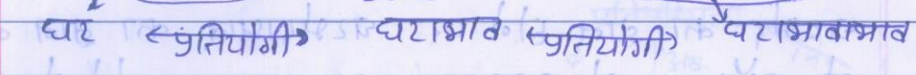 घट ←प्रतियोगी→ घटाभाव ←प्रतियोगी→ घटाभावाभाव